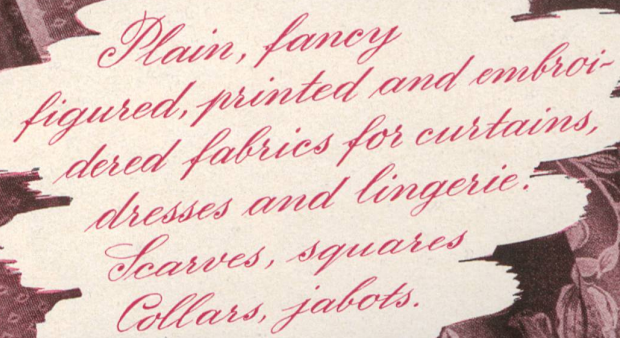 Plain, fancy
figured, printed and embroi-
dered fabrics for curtains,
dresses and lingerie.
Scarves, squares
Collars, jabots.